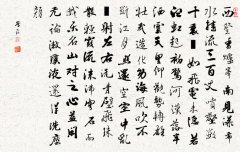 西登香爐峰南見瀑布
水挂流三百丈噴壑數
十里欻如飛電來隱若
白虹起初驚河漢落半
洒雲天里仰觀勢轉雄
壯哉造化功海風吹不
斷江月照還空空中亂
潈射左右洗青壁飛珠
散輕霞流沫沸穹石而
我樂名山對之心益閒
無論漱瓊液還得洗塵
顏